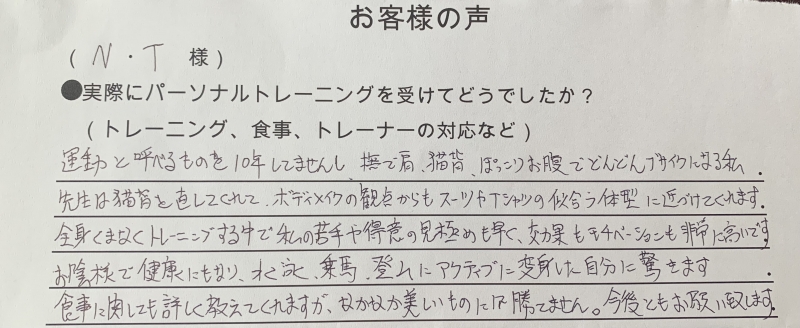 お客様の声
( N・T 様)
●実際にパーソナルトレーニングを受けてどうでしたか?
(トレーニング、食事、トレーナーの対応など)
運動と呼べるものを10年してませんし、撫で肩、猫背、ぽっこりお腹でどんどんブサイクになる私.
先生は猫背を直してくれて、ボディメイクの観点からもスーツやTシャツの似合う体型に近づけてくれます.
全身くまなくトレーニングする中で私の苦手や得意の見極めも早く、効果もモチベーションも非常に高いです
お陰様で健康にもなり、水泳、乗馬、登山にアクティブに変身した自分に驚きます.
食事に関しても詳しく教えてくれますが、なかなか美しいものには勝てません。今後ともお願い致します.